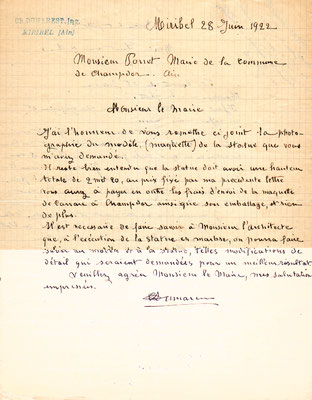 MIRIBEL (Ain)
Miribel 28 Juin 1922
Monsieur Maire de la commune
de Champdor Ain
Monsieur le Maire
J'ai l'honneur de vous remettre ci joint la photo-
graphie du modèle, (maquette) de la statue que vous
m'avez demandé.
Il reste bien entendu que la statue doit avoir une hauteur
totale de 2 mèt 20, au prix fixé par ma précédente lettre
vous aurez à payer en outre les frais d'envoi de la maquette
de Carrare à Champdor ainsi que son emballage, et rien
de plus.
Il est necessaire de faire savoir à Monsieur l'architecte
que, à l'exécution de la statue en marbre, on pourra faire
au modèle à la statue, telles modifications de
détail qui seraient demandées pour un meilleur resultat
Veuillez agréer Monsieur le Maire, mes salutation
empressées.